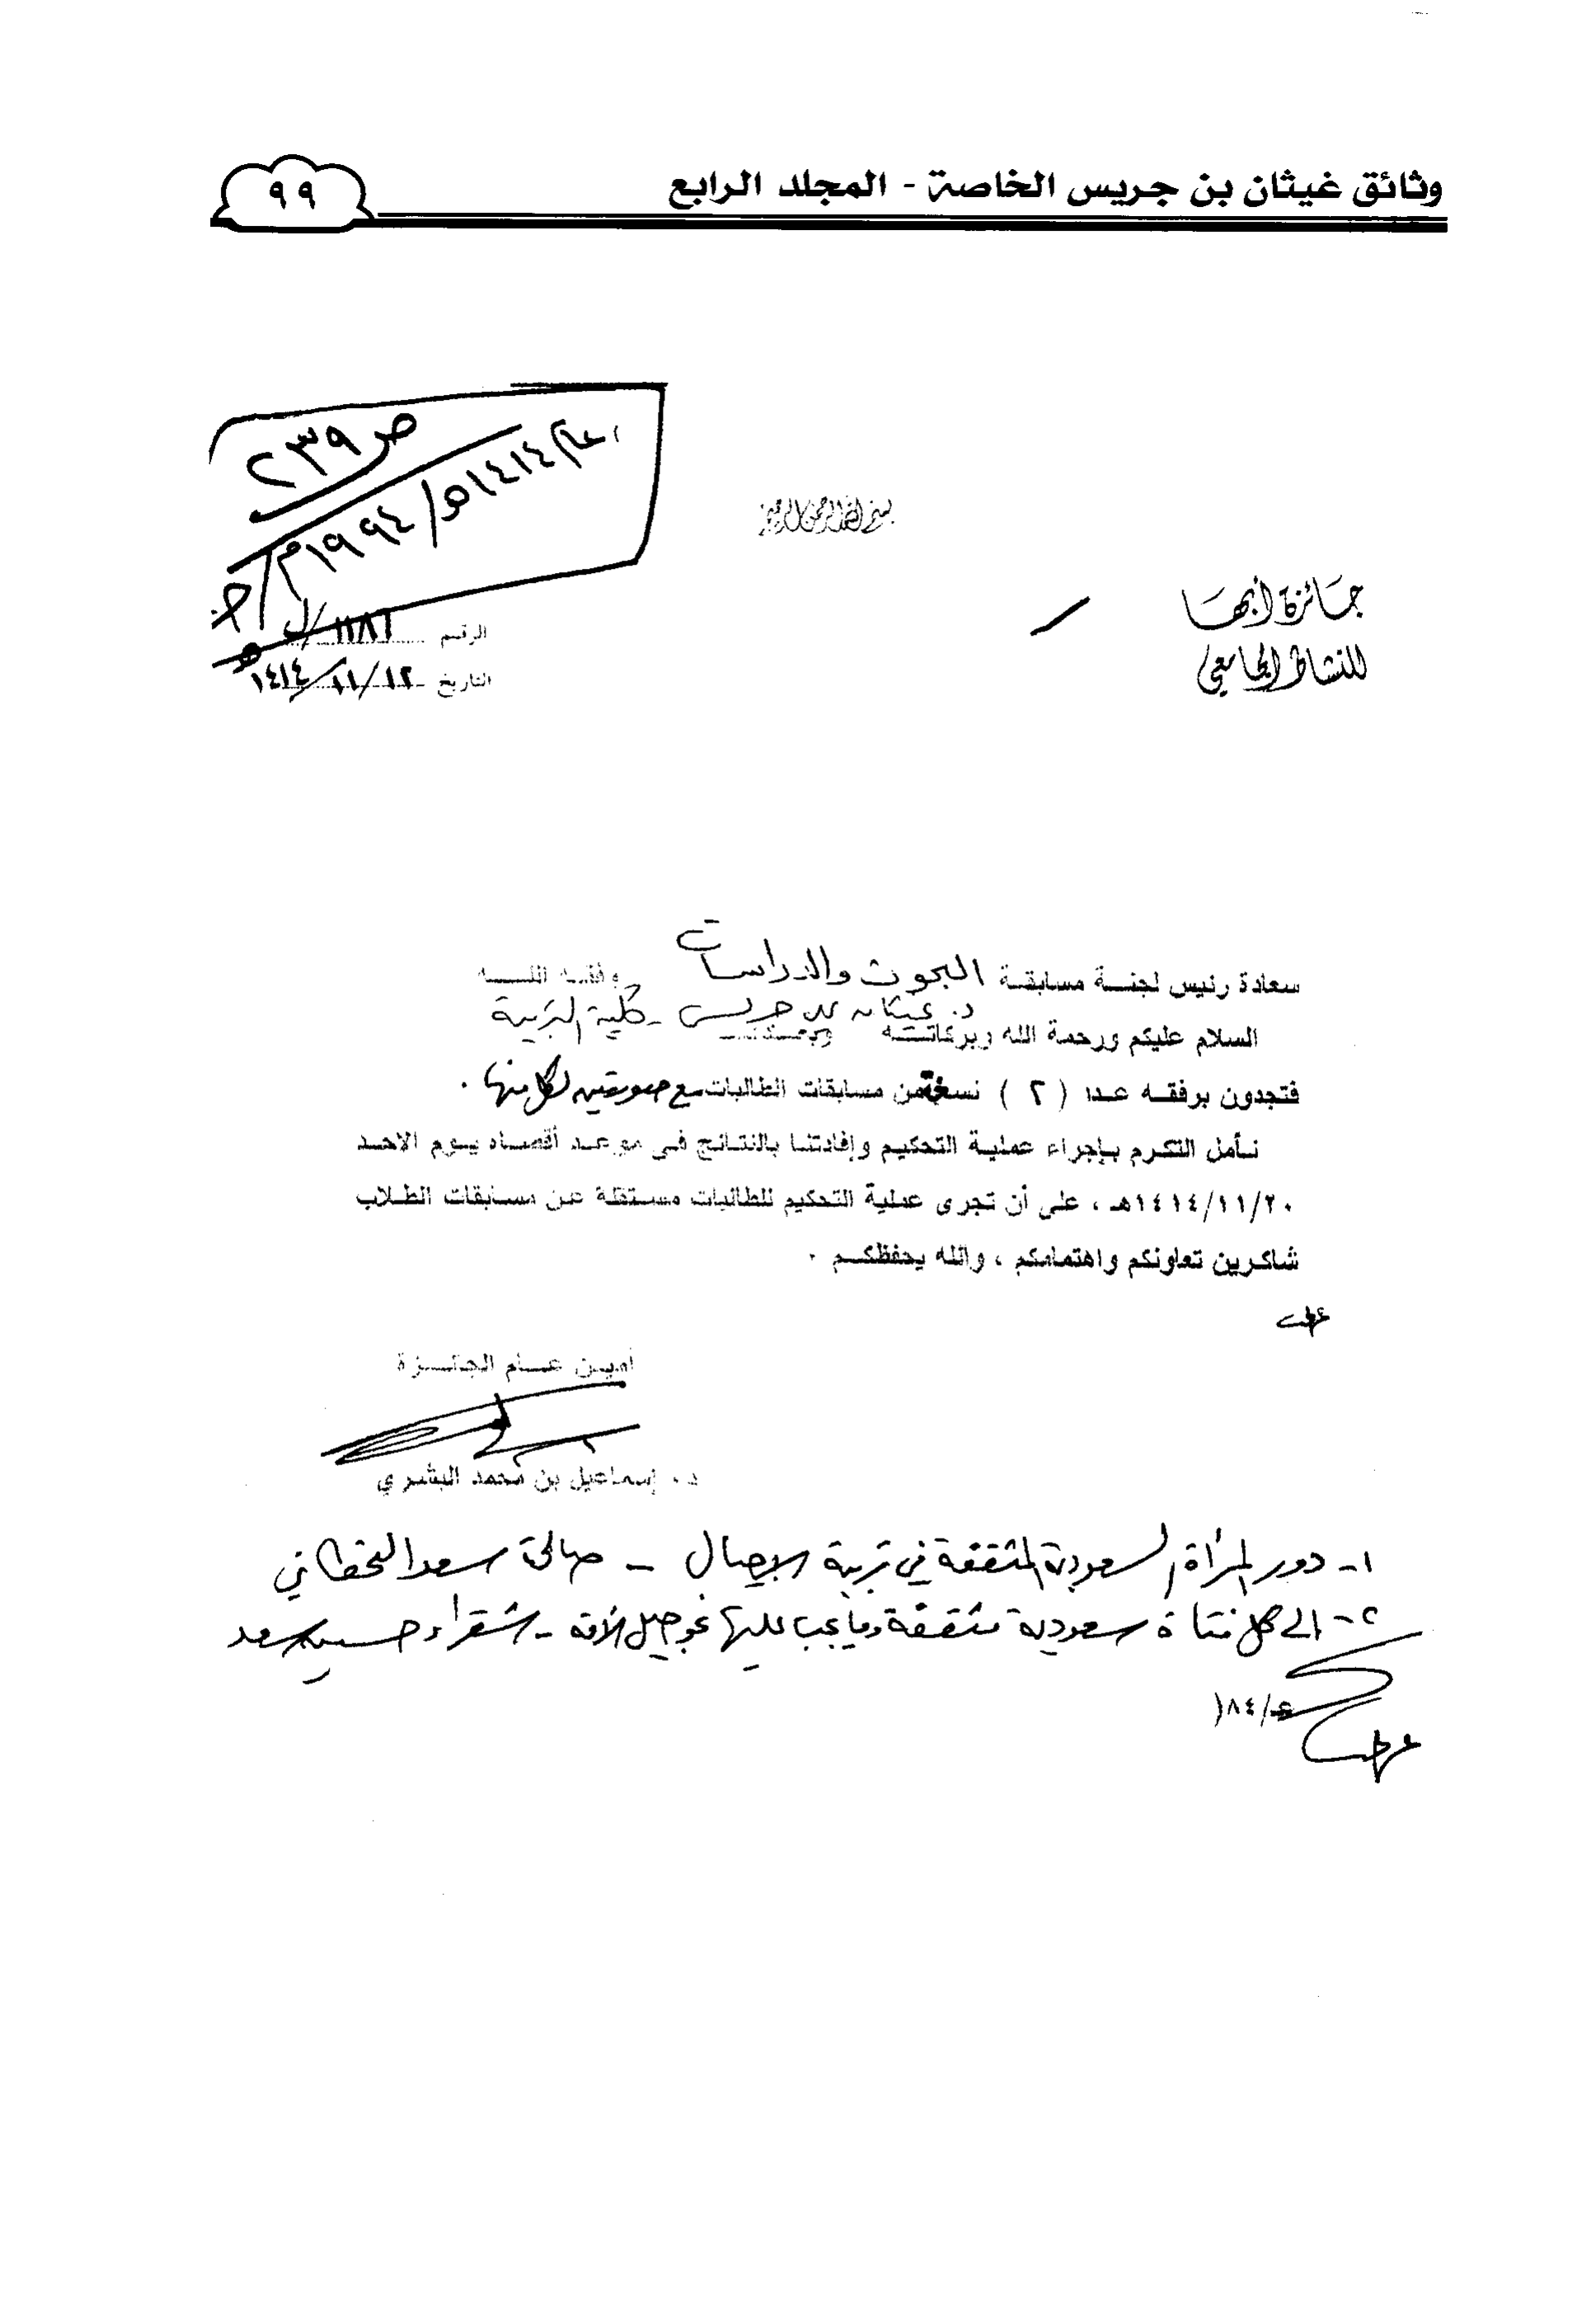 وثائق غيثان بن جريس الخاصة - المجلد الرابع
٩٩
ص ٢٣٩
عام ١٤١٤هـ/١٩٩٤م/ج
بسم الله الرحمن الرحيم
جائزة أبها
للنشاط الجامعي
الرقم ١١٨٦/ل
التاريخ ١٤١٤/١١/١٢هـ
سعادة رئيس لجنة مسابقة البحوث والدراسات وفقه الله
د. غيثان بن جريس - كلية التربية
السلام عليكم ورحمة الله وبركاته وبعد
فتجدون برفقه عدد ( ٢ ) نسخة من مسابقات الطالبات مع صورتين لكل منها .
نأمل التكرم بإجراء عملية التحكيم وإفادتنا بالنتائج في موعد أقصاه يوم الاحد
١٤١٤/١١/٢٠هـ ، على أن تجرى عملية التحكيم للطالبات مستقلة عن مسابقات الطلاب
شاكرين تعاونكم واهتمامكم ، والله يحفظكم .
أمين عام الجائزة
د. إسماعيل بن محمد البشري
١- دور المرأة السعودية المثقفة في تربية الأجيال - صالحة سعد القحطاني
٢- إلى كل فتاة سعودية مثقفة وما يجب عليها نحو جيل الأمة - شقراء حسين سعد
ع/٨٤